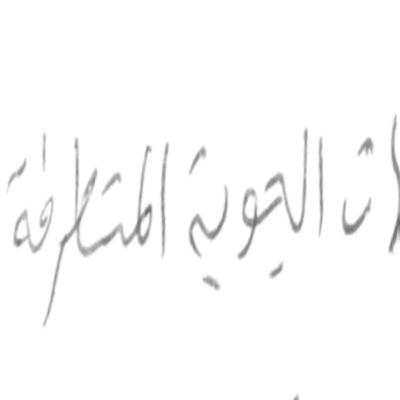 الجوية المتطرفة